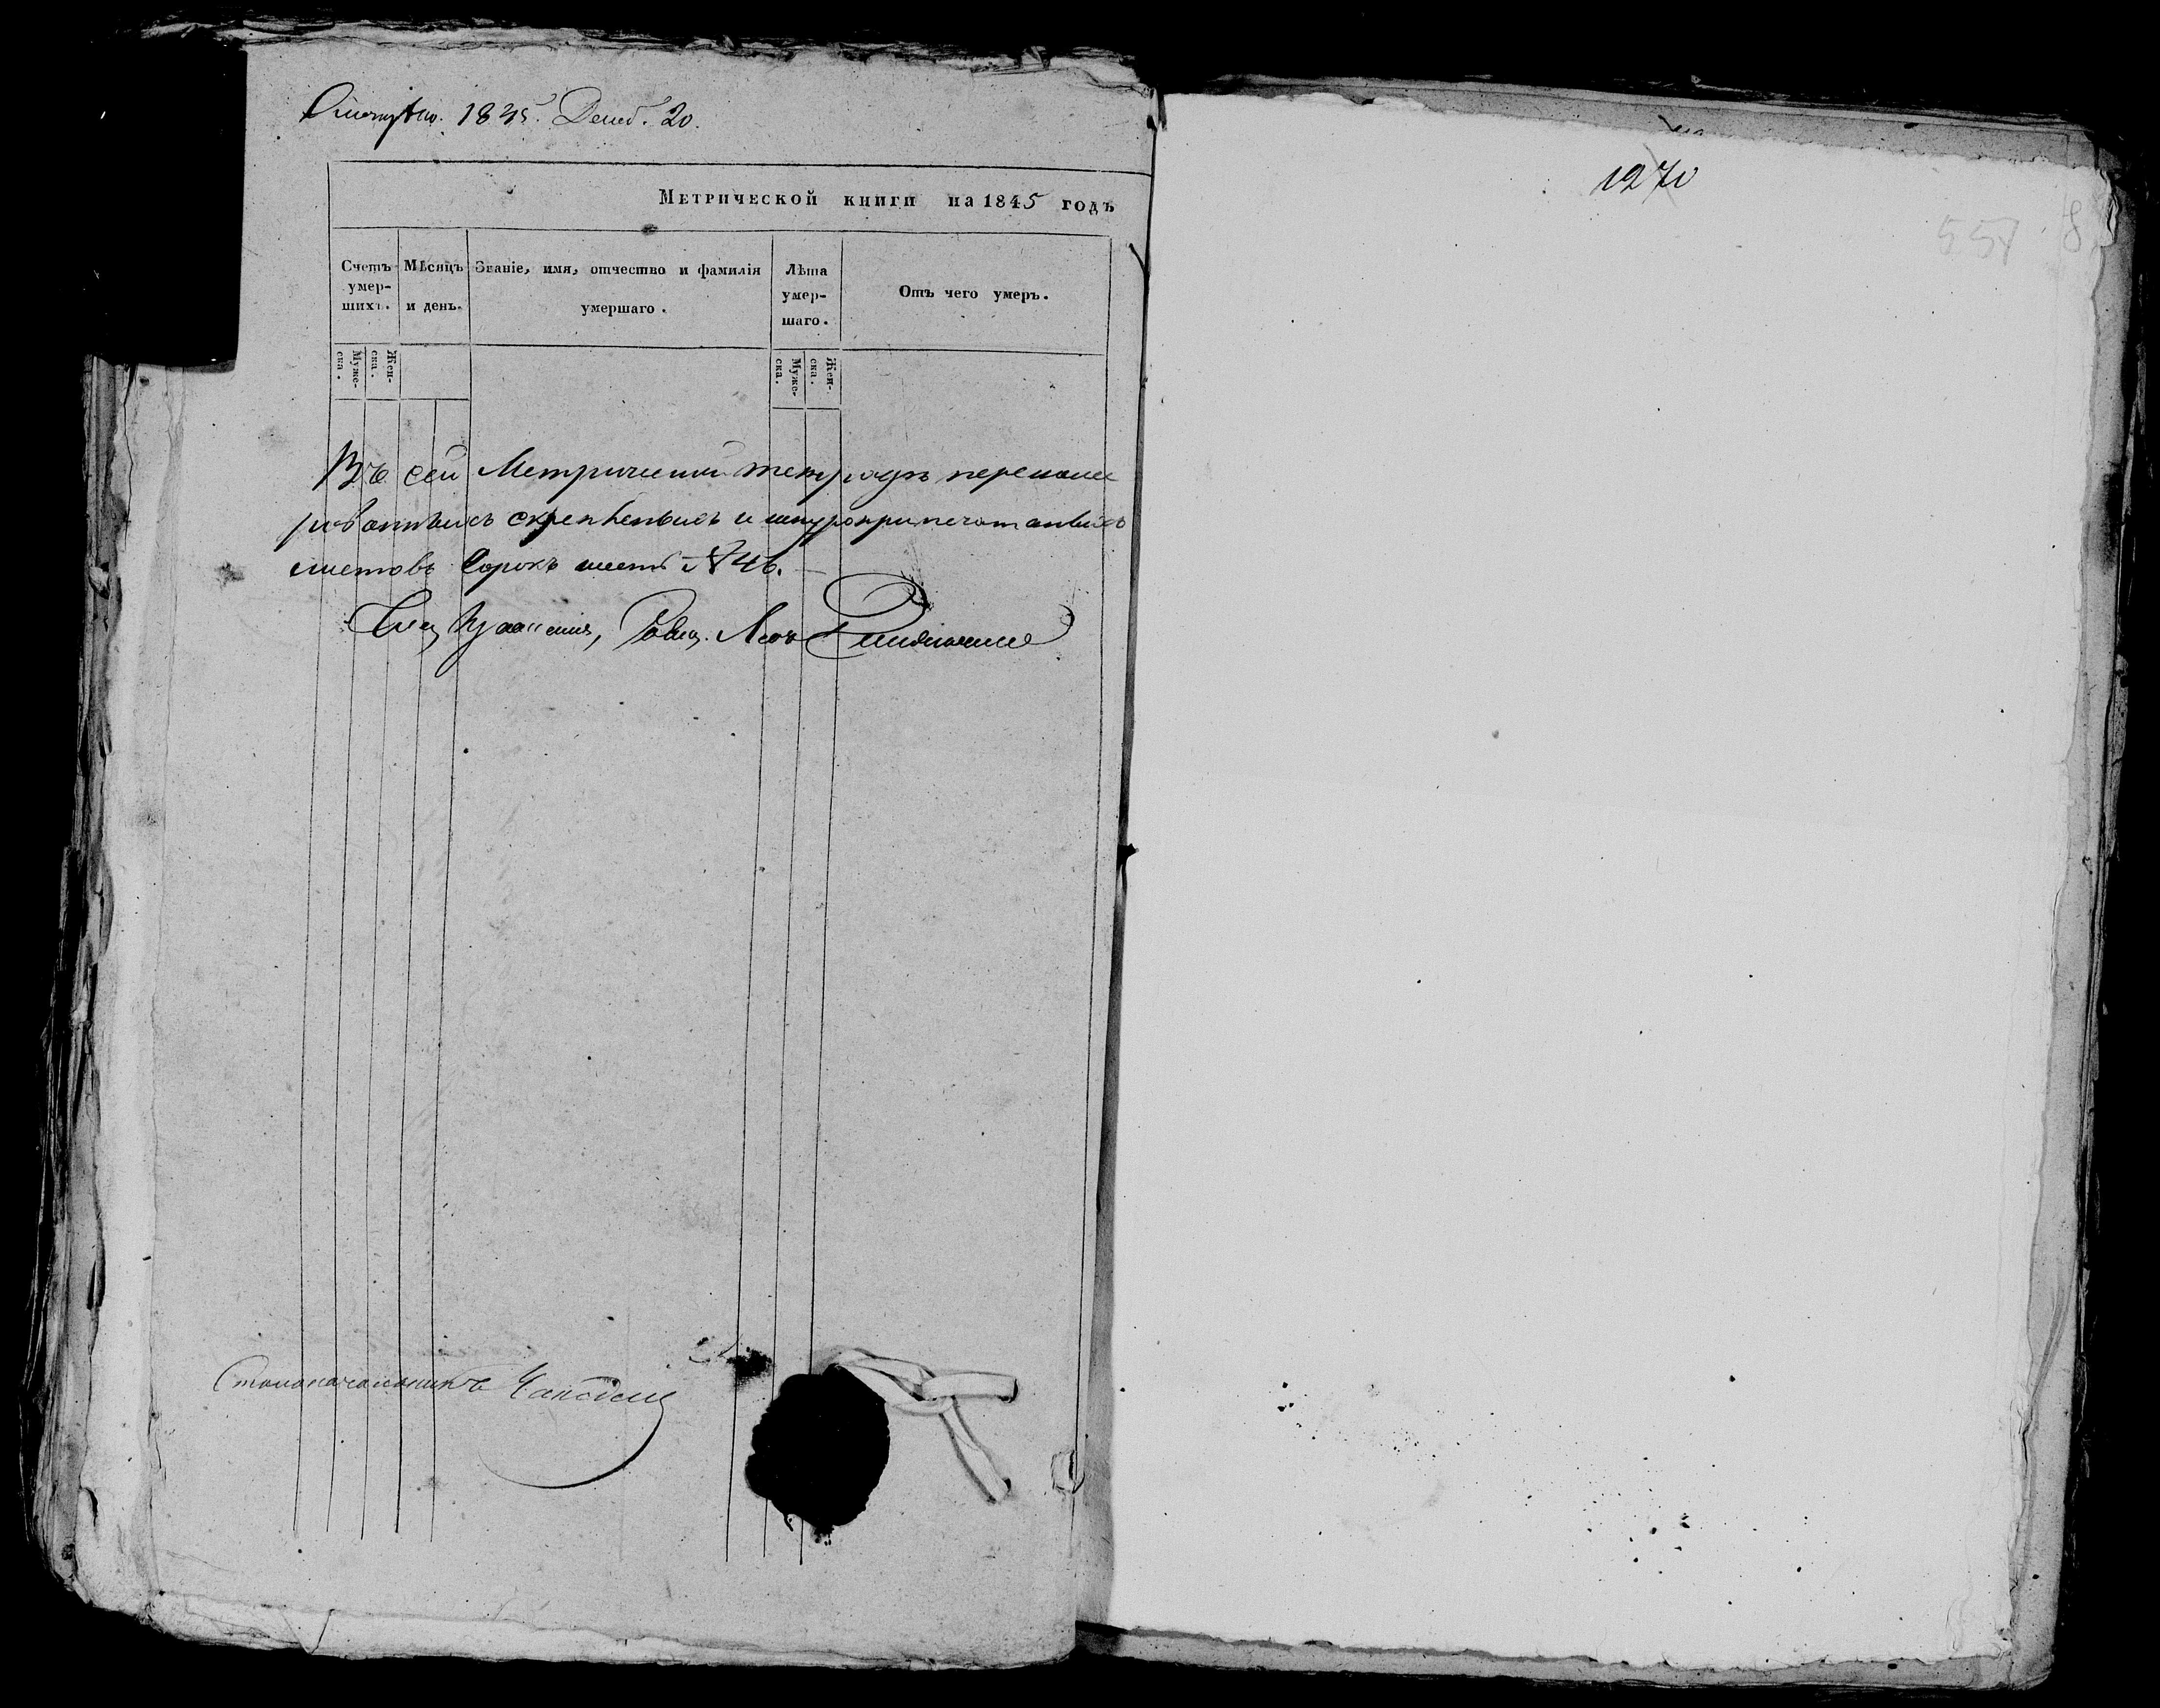 1845. Декаб. 20.
Метрической книги на 1845 годъ
Счетъ умер- шихъ.
Мѣсяцъ и день.
Званіе, имя, отчество и фамилія умершаго.
Лѣта умер- шаго.
Отъ чего умеръ.
Муже- ска.
Жен- ска.
Муже- ска.
Жен- ска.
Въ сей Метрической тетради перенуме
рованныхъ скрепленныхъ и шнуроприпечатанныхъ
листовъ Сорокъ шесть № 46.
Член Правления,
Столоначальникъ
1270
557
8